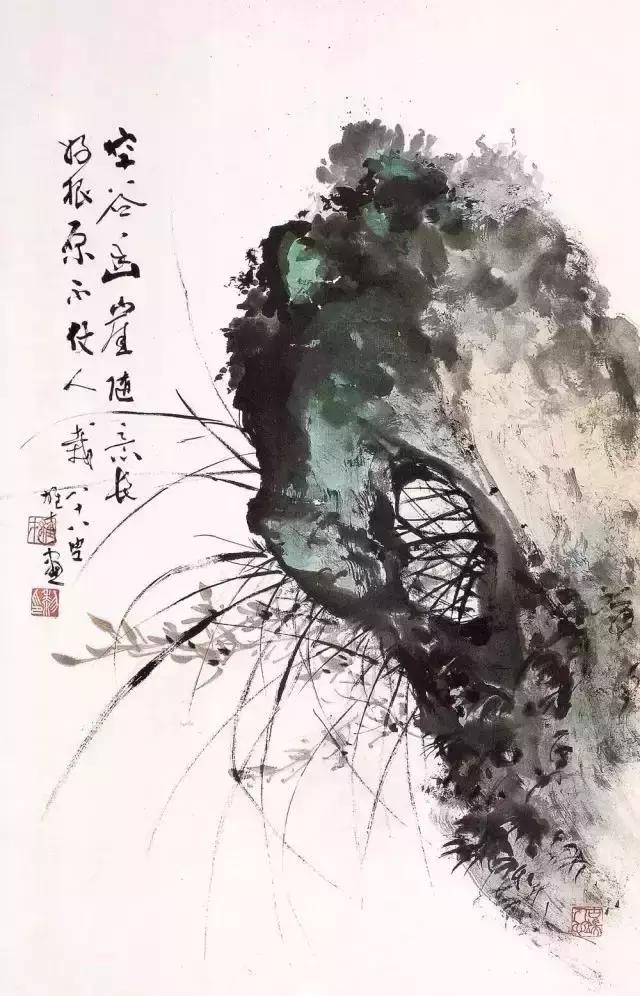 空谷幽崖随意长
好根原不仗人栽
八十八叟
雄才画